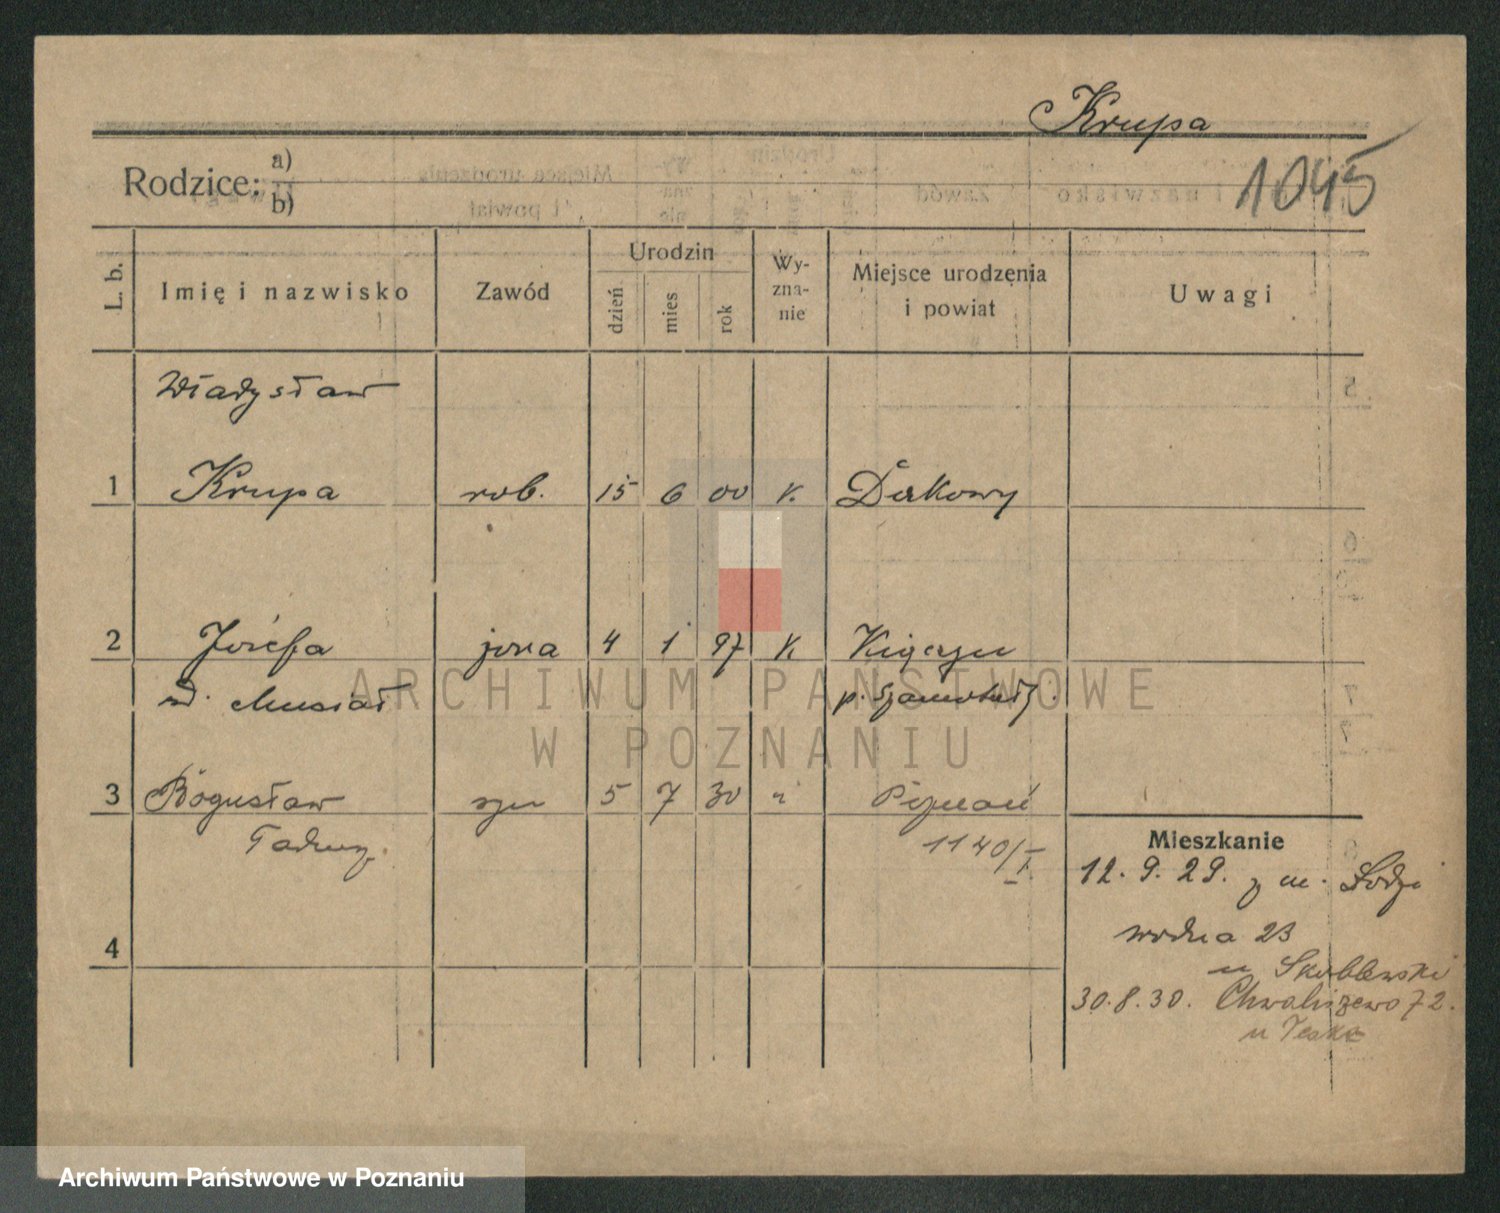 Krupa
1045
Rodzice: a)
b)
L. b.
Imię i nazwisko
Zawód
Urodzin
dzień
mies
rok
Wy-
zna-
nie
Miejsce urodzenia
i powiat
Uwagi
Władysław
1 Krupa rob. 15 6 00 k.
2 Józefa żona 4 1 97 k.
Musiał p. Szamotuły
3 Bogusław syn 5 7 30 Poznań
Tadeusz 1140/I.
Mieszkanie
12. 9. 29. z m. Łodzi
4
Wodna 23
u
30. 8. 30. Chwaliszewo 72.
u
ARCHIWUM PAŃSTWOWE
W POZNANIU
Archiwum Państwowe w Poznaniu